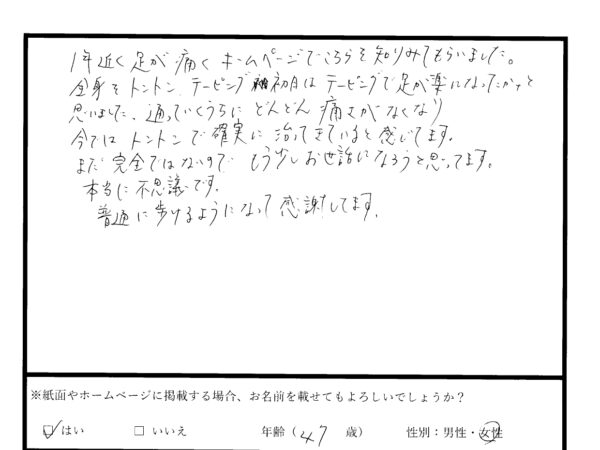 1年近く足が痛くホームページでこちらを知りみてもらいました。
全身をトントン テーピング 初日はテーピングで足が楽になったかナと
思いました。通っていくうちにどんどん痛さがなくなり
今ではトントンで確実に治ってきていると感じてます。
まだ完全ではないのでもう少しお世話になろうと思ってます。
本当に不思議です。
普通に歩けるようになって感謝してます。
※紙面やホームページに掲載する場合、お名前を載せてもよろしいでしょうか？
☑はい □いいえ 年齢（47 歳） 性別：男性・女性